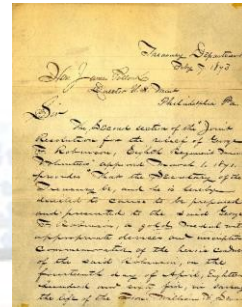 Treasury Department
Feby 7, 1873
Hon James Pollock
Director U.S. Mint
Philadelphia Pa
Sir
The Second section of the "Joint
Resolution for the relief of George
F. Robinson, Eighth Regiment Maine
Volunteers" approved March 1, 1871,
provides "That the Secretary of the
Treasury be, and he is hereby
directed to cause to be prepared
and presented to the said George
F. Robinson, a gold medal with
appropriate devices and inscriptions
commemorative of the heroic conduct
of the said Robinson, on the
fourteenth day of April, eighteen
hundred and sixty five, in saving
the life of the Honor. William H. Sew